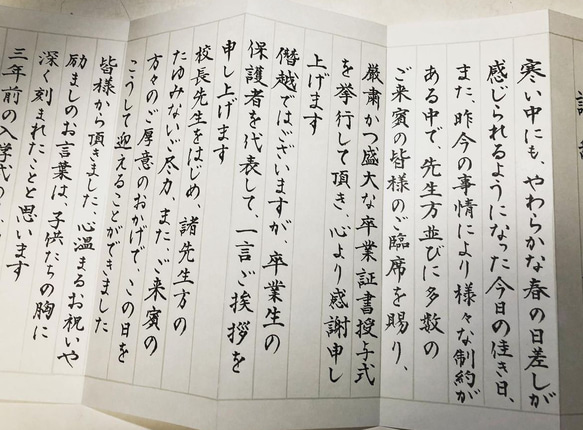 謝辞
寒い中にも、やわらかな春の日差しが
感じられるようになった今日の佳き日、
また、昨今の事情により様々な制約が
ある中で、先生方並びに多数の
ご来賓の皆様のご臨席を賜り、
厳粛かつ盛大な卒業証書授与式
を挙行して頂き、心より感謝申し
上げます
僭越ではございますが、卒業生の
保護者を代表して、一言ご挨拶を
申し上げます
校長先生をはじめ、諸先生方の
たゆみないご尽力、また、ご来賓の
方々のご厚意のおかげで、この日を
こうして迎えることができました
皆様から頂きました、心温まるお祝いや
励ましのお言葉は、子供たちの胸に
深く刻まれたことと思います
三年前の入学式の